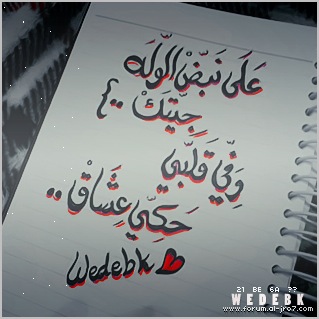 عَلَى نَبَضْ الوّلَه
جِيتَكْ .. {
وَفِي قَلَبّي
حَكِيّ عِشّاقْ ..
Wedebk
21 BE 6A ??
WEDEBK
www.forum.al-jro7.com